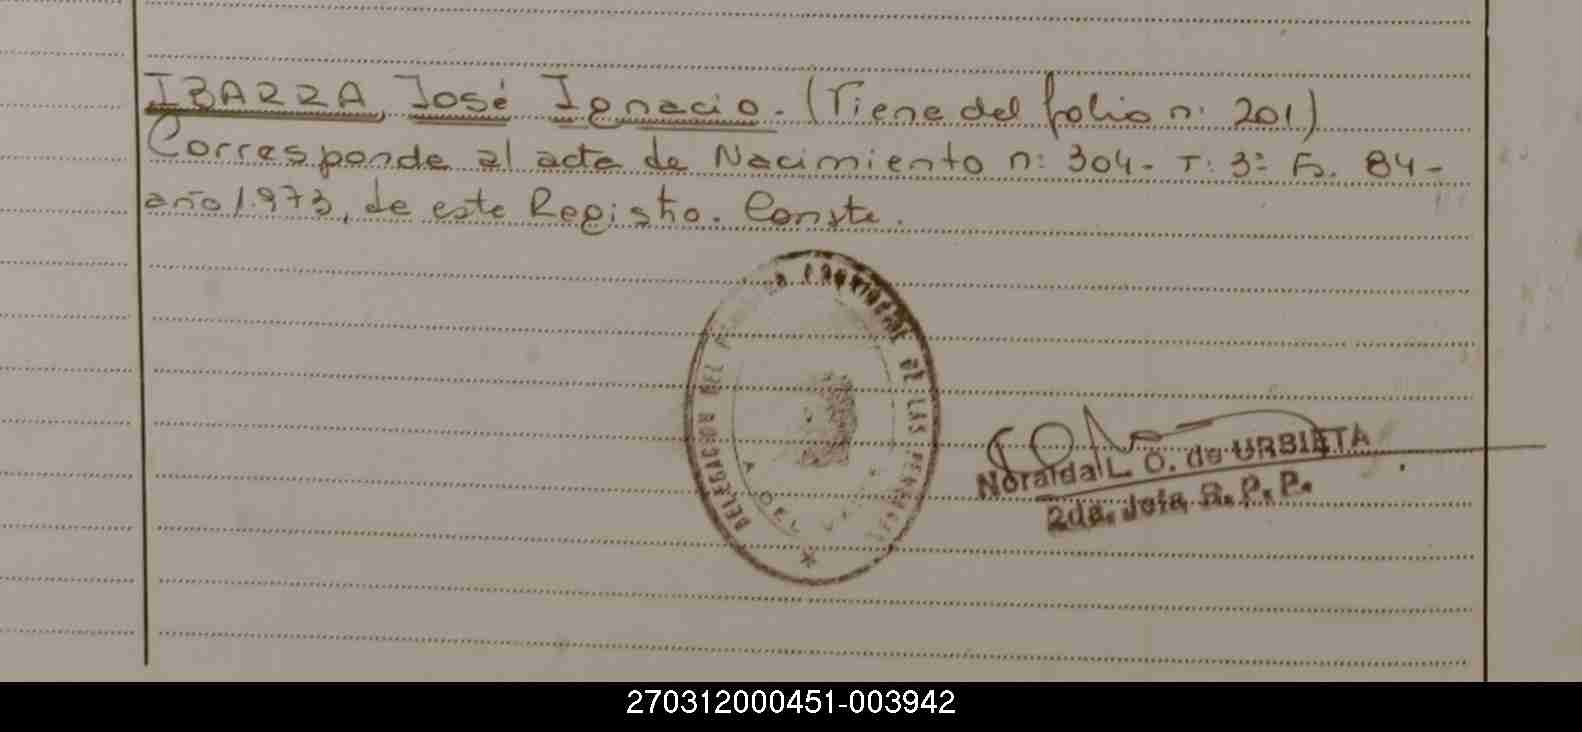 IBARRA, José Ignacio. (Viene del folio n: 201)
Corresponde al acta de Nacimiento n: 304- T: 3º F. 84-
año 1.973, de este Registro. Conste.
DELEGACION DEL PROVINCIAL DE LAS PERSONAS
Noralda L. O. de URBIETA
2da. Jefa R. P. P.
270312000451-003942